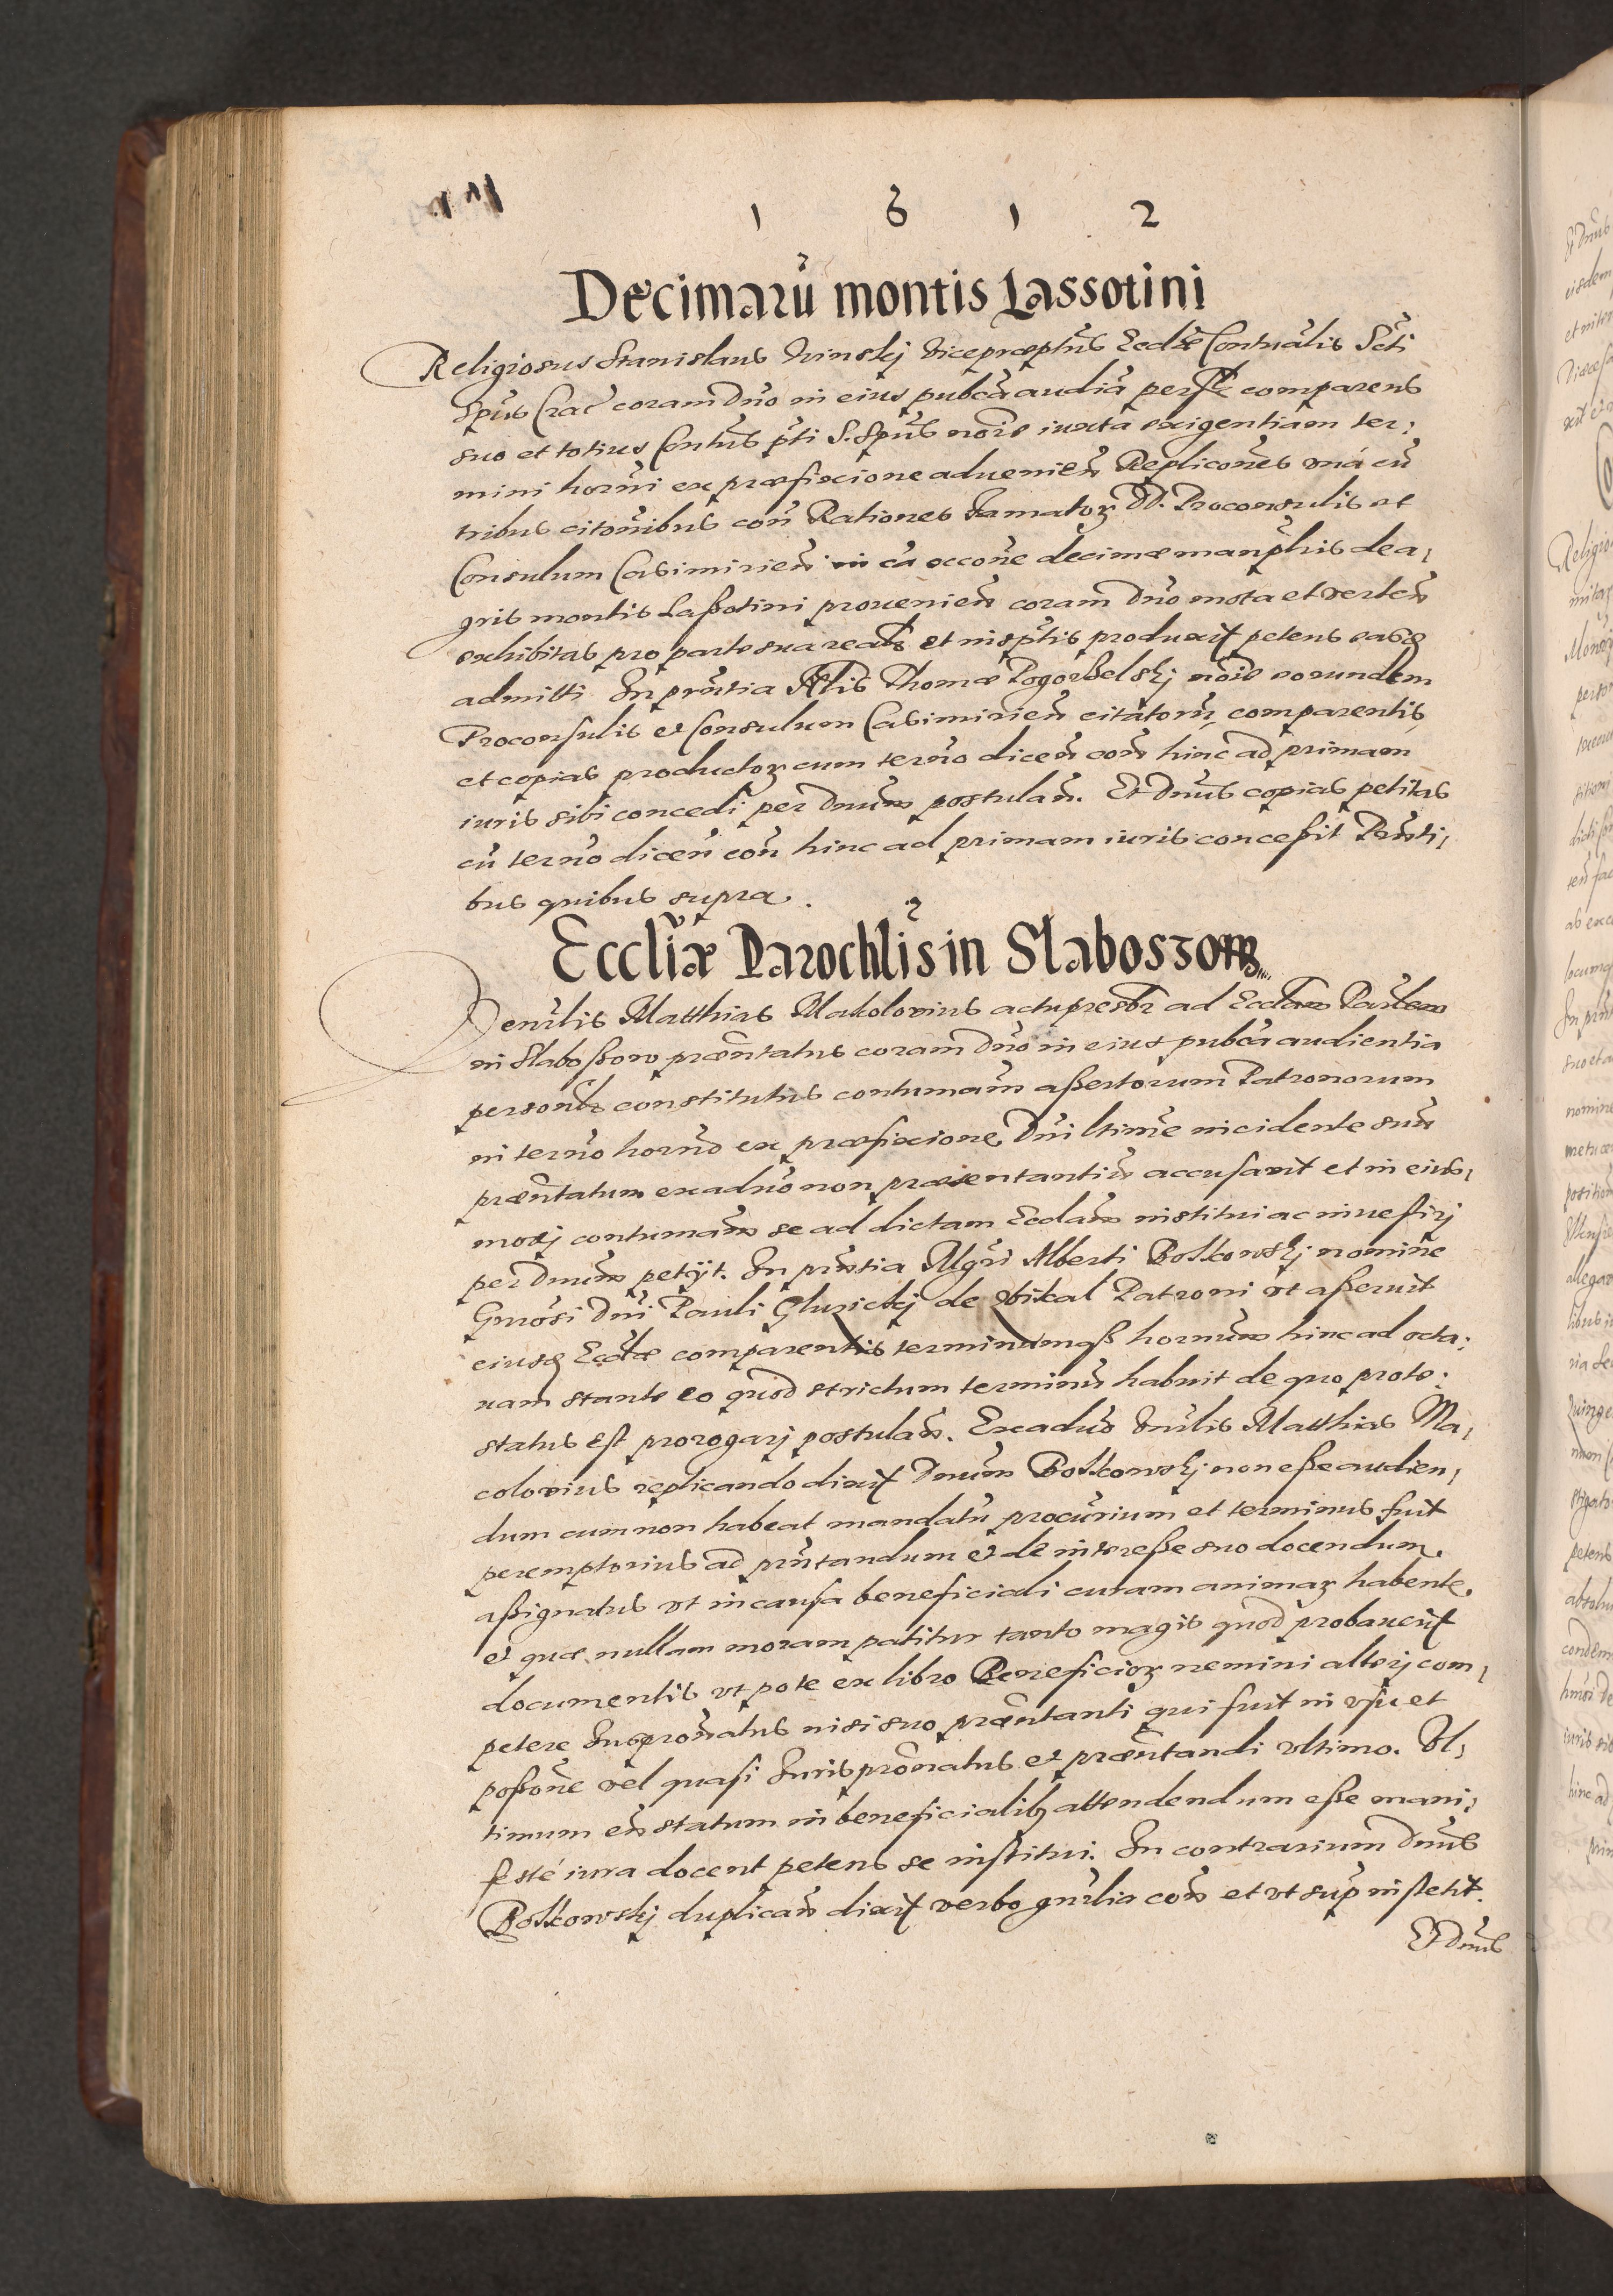 1 6 1 2
Decimarũ montis Lassotini
Religiosus Stanislaus Vinskj Vicepræptũs Ecclæ Contuãlis Scti
Spũs Crac coram Dño in eius pubca audia perslr comparens
suo et totius Contũs pti S. Spũs noie iuxta exigentiam ter:
mini horñi ex præfixcione adueniẽn Replicoñes vná cũ
tribus citoñibus coñ Rationes Famatoꝝ DD. Proconsulis et
Consulum Casimirieñ in cã occoñe decimæ manplris de a,
gris montis Lassotini prouenieñ coram Dño mota et verteñ
exhibitas pro parte sua realr et in sptis produxit petens easq
admitti. In prñtia Nlis Thomæ Pogorzelskj noie eorundem
Proconsulis et Consulum Casimirieñ citatorũ, comparentis
et copias productoꝝ cum terño diceñ coñ hinc ad primam
iuris sibi concedi per Dnum postulañ. Et Dnũs copias petitas
cũ terño diceñ coñ hinc ad primam iuris concessit Pñti,
bus quibus supra.
Eccliæ Parochlis in Slaboszow
Venrlis Matthias Makolovius actu presbr ad Ecclam Parlem
in Slaboszow præntatus coram Dño in eius pubca audientia
personlr constitutus contumãm assertorum Patronorum
in terño horño ex præfixcione Dñi ltimæ incidente suũ
præntatum ex aduõ non præsentantiũ accusavit et in eius,
mõrj contumam se ad dictam Ecclam institui ac inuestirj
per Dnum petijt. In prñtia Mgri Alberti Bolkowskj nomine
Gnrosi Dñi Pauli Gluzickj de Patroni vt asseruit
eiusq Ecclæ comparentis terminumq hornum hinc ad octa:
uam stante eo quod strictum terminũ habuit de quo prote:
status est prorogarj postulañ. Ex aduõ Vnrlis Matthias Ma,
colovius replicando dixit Dnum Bolkowskj non esse audien,
dum cum non habeat mandatũ procũrium et terminus fuit
peremptorius ad prñtandum et de interesse suo docendum
assignatus vt in causa beneficiali curam animaꝝ habente,
et quæ nullam moram patitur tanto magis quod probauerit
documentis vt pote ex libro Beneficioꝝ nemini alterj com,
petere Iuspronatus nisi suo præntanti qui fuit in vsu et
possõne vel quasi Iurispronatus et præntandi vltimo. Vl,
timum eñ statum in beneficialibꝫ attendendum esse mani,
festé iura docent petens se institui. In contrarium Dnus
Bolkowskj duplicañ dixit verbo gnrlia coñ et vt sup institit.
Et Dnus